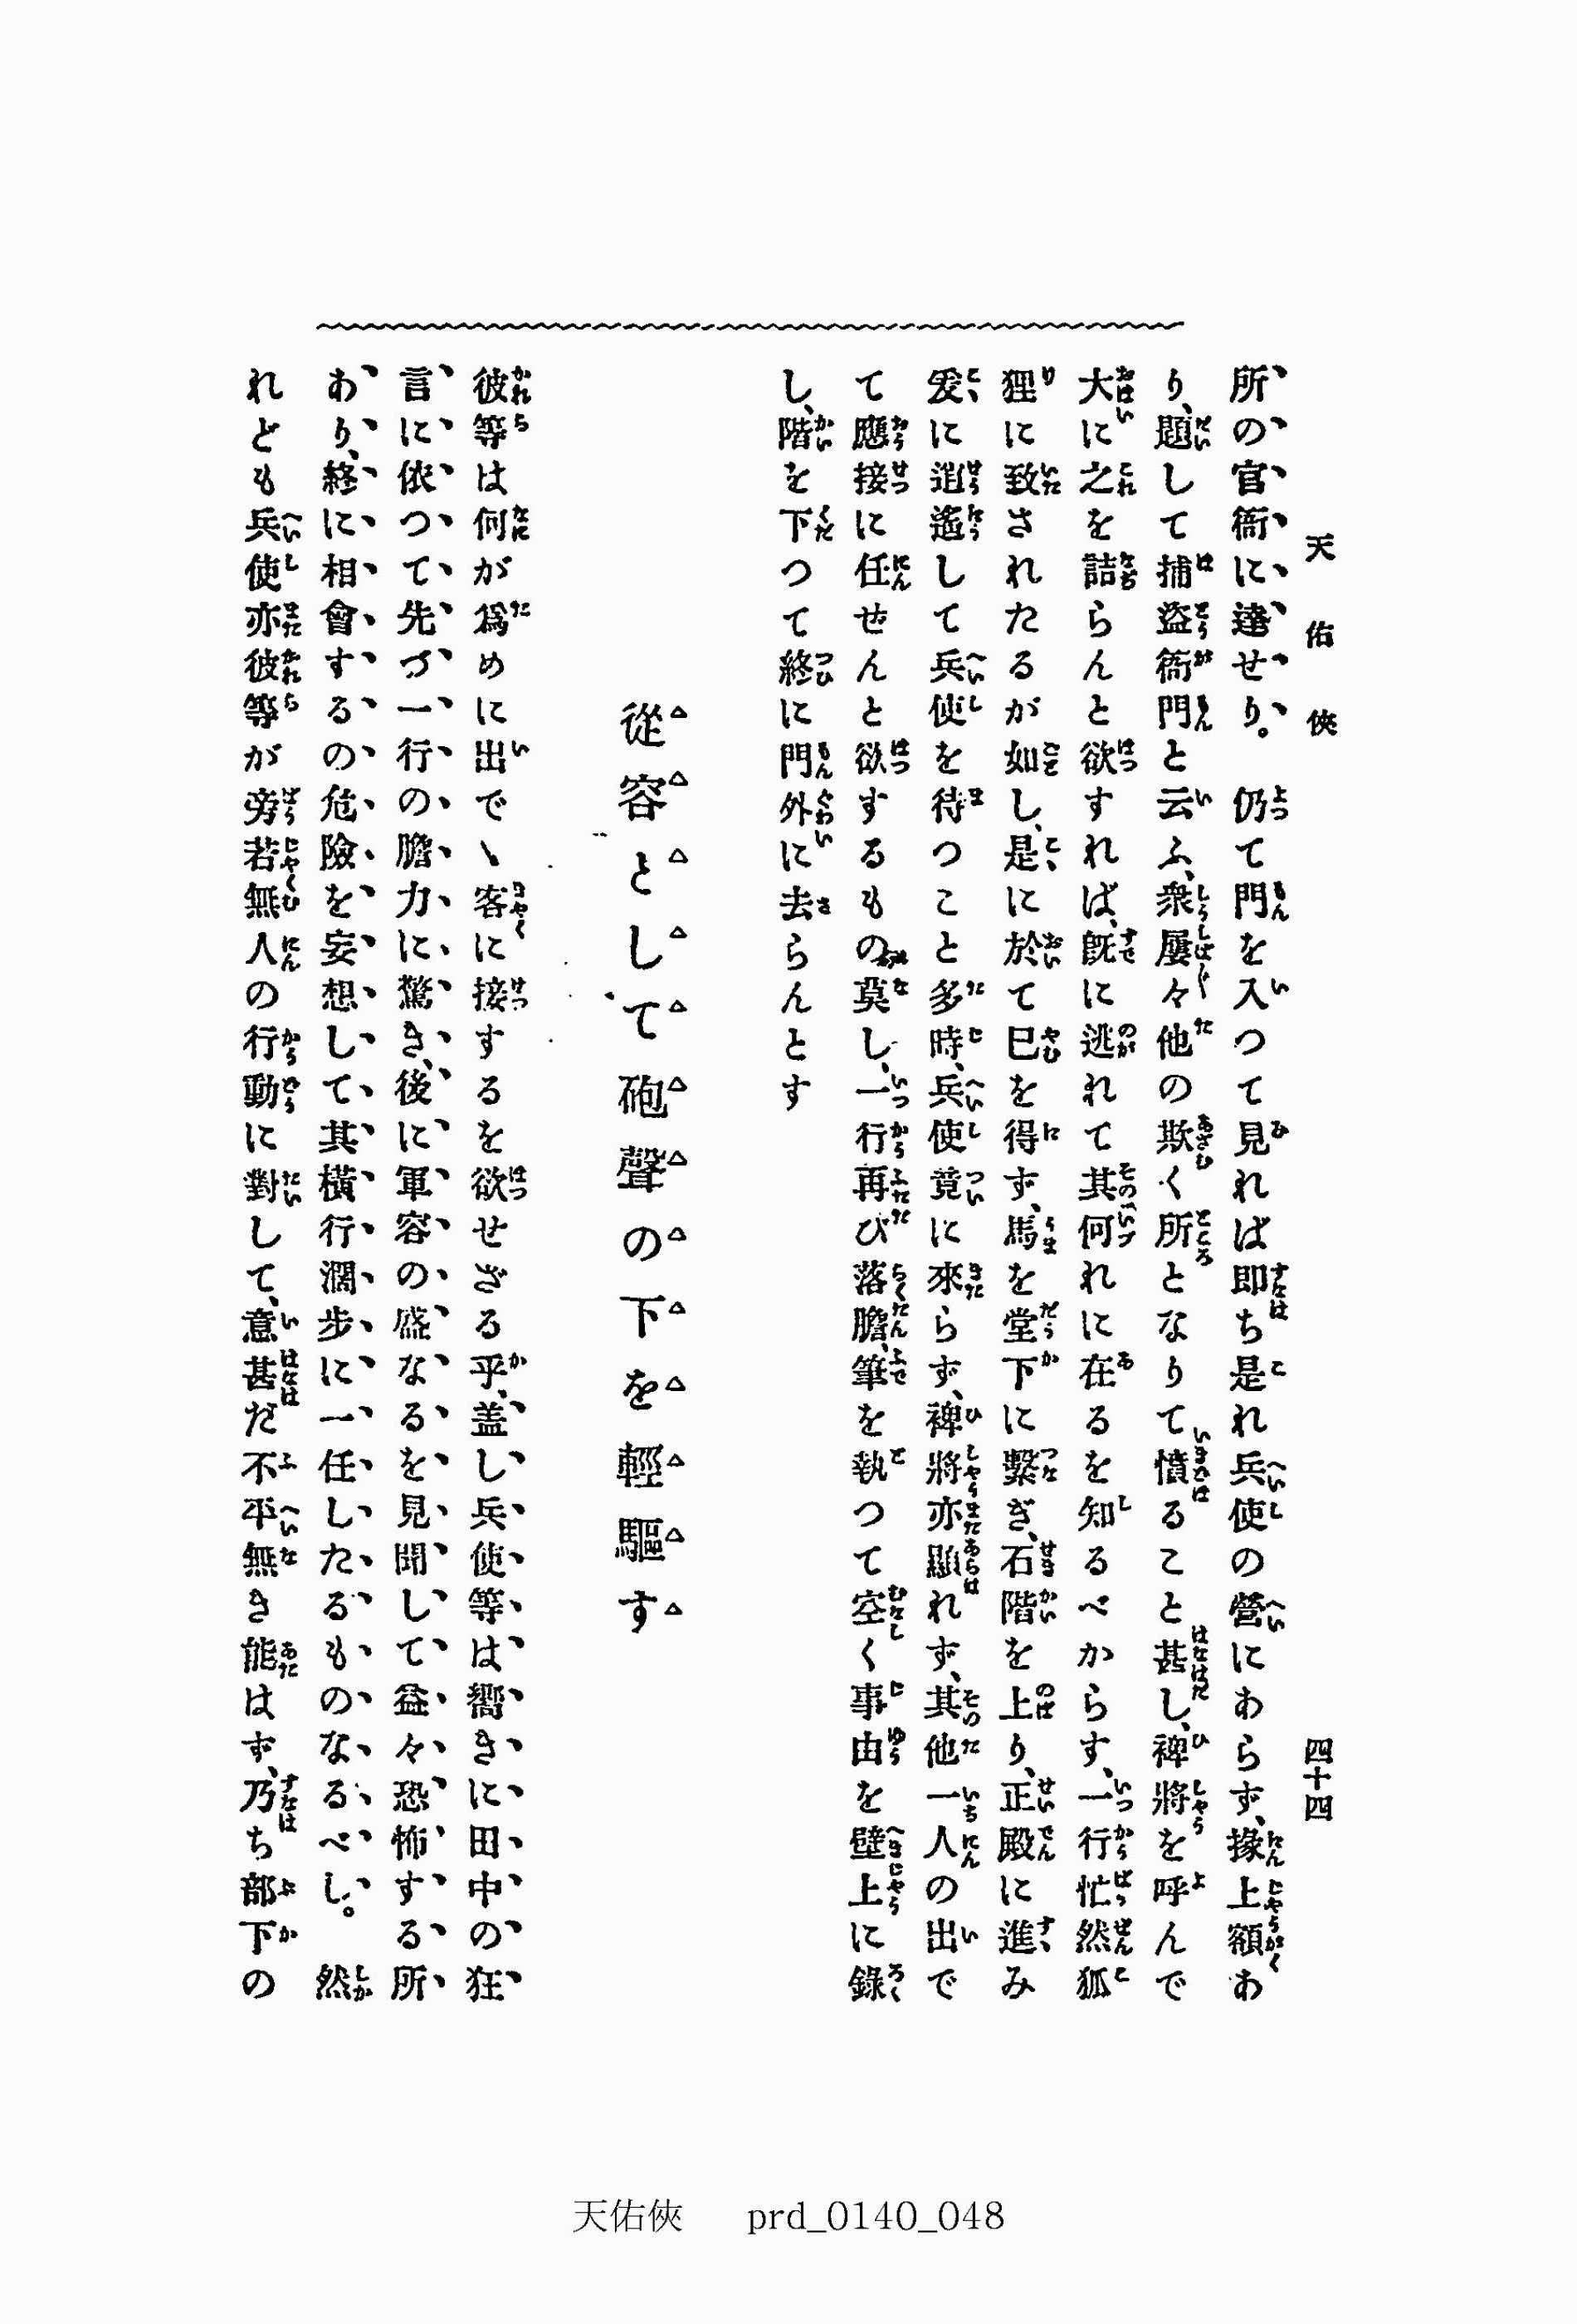 天佑俠
四十四
所の官衙に達せり。仍て門を入つて見れば卽ち是れ兵使の營にあらず、掾上額あ
り、題して捕盜衙門と云ふ、衆屢々他の欺く所となりて憤ること甚し、裨將を呼んで
大に之を詰らんと欲すれば、旣に逃れて其何れに在るを知るべからす、一行忙然狐
狸に致されたるが如し、是に於て已を得ず、馬を堂下に繫ぎ、石階を上り、正殿に進み
爰に逍遙して兵使を待つこと多時、兵使竟に來らず、裨將亦顯れず、其他一人の出で
て應接に任せんと欲するもの莫し、一行再び落膽、筆を執つて空く事由を壁上に錄
し、階を下つて終に門外に去らんとす
從容として砲聲の下を輕驅す
彼等は何が爲めに出でゝ客に接するを欲せざる乎、盖し兵使等は嚮きに田中の狂
言に依つて先づ一行の膽力に驚き、後に軍容の盛なるを見聞して益々恐怖する所
あり、終に相會するの危險を妄想して其橫行濶步に一任したるものなるべし。然
れども兵使亦彼等が旁若無人の行動に對して、意甚だ不平無き能はず、乃ち部下の
天佑俠 prd_0140_048